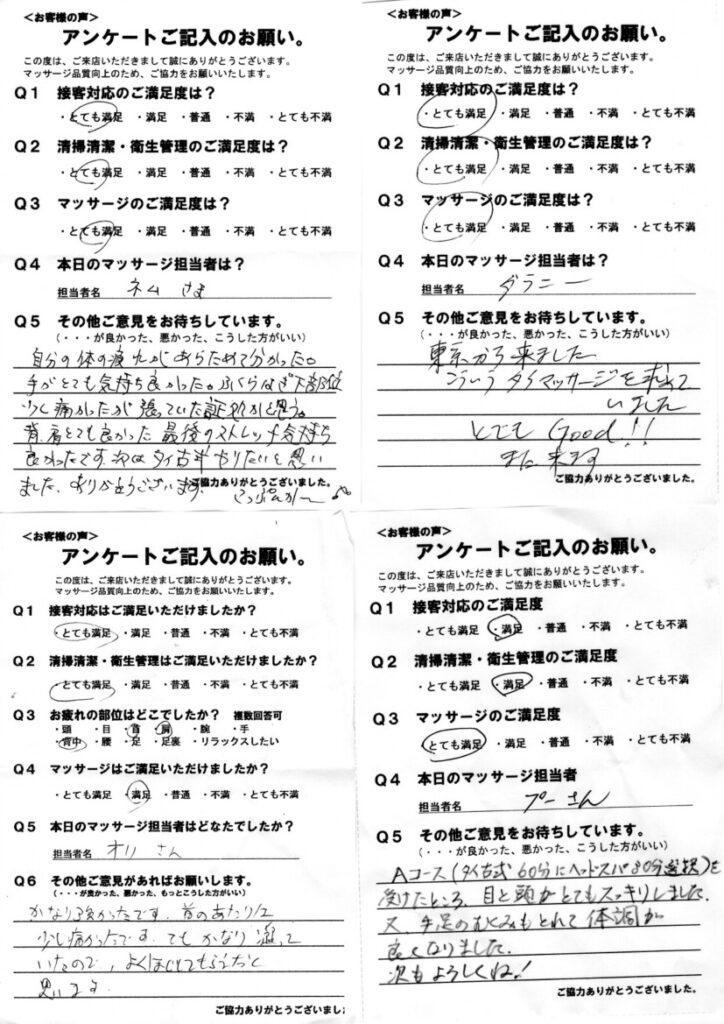 ＜お客様の声＞
アンケートご記入のお願い。
この度は、ご来店いただきまして誠にありがとうございます。
マッサージ品質向上のため、ご協力をお願いいたします。
Q1 接客対応のご満足度は？
・とても満足 ・満足 ・普通 ・不満 ・とても不満
Q2 清掃清潔・衛生管理のご満足度は？
・とても満足 ・満足 ・普通 ・不満 ・とても不満
Q3 マッサージのご満足度は？
・とても満足 ・満足 ・普通 ・不満 ・とても不満
Q4 本日のマッサージ担当者は？
担当者名 ネム さま
Q5 その他ご意見をお待ちしています。
（・・・が良かった、悪かった、こうした方がいい）
自分の体の疲れがあらためて分かった。
手がとても気持ち良かった。ふくらはぎ
少し痛かったが張っていた証拠かと思う。
背、肩とても良かった 最後のストレッチ気持ち
良かったです。次はタイ古式やりたいと思い
ました、ありがとうございます。
ご協力ありがとうございました。
＜お客様の声＞
アンケートご記入のお願い。
この度は、ご来店いただきまして誠にありがとうございます。
マッサージ品質向上のため、ご協力をお願いいたします。
Q1 接客対応のご満足度は？
・とても満足 ・満足 ・普通 ・不満 ・とても不満
Q2 清掃清潔・衛生管理のご満足度は？
・とても満足 ・満足 ・普通 ・不満 ・とても不満
Q3 マッサージのご満足度は？
・とても満足 ・満足 ・普通 ・不満 ・とても不満
Q4 本日のマッサージ担当者は？
担当者名 ダラニー
Q5 その他ご意見をお待ちしています。
（・・・が良かった、悪かった、こうした方がいい）
東京から来ました
こういうタイマッサージを求めて
いました
とても Good!!
また来ます
ご協力ありがとうございました。
＜お客様の声＞
アンケートご記入のお願い。
この度は、ご来店いただきまして誠にありがとうございます。
マッサージ品質向上のため、ご協力をお願いいたします。
Q1 接客対応はご満足いただけましたか？
・とても満足 ・満足 ・普通 ・不満 ・とても不満
Q2 清掃清潔・衛生管理はご満足いただけましたか？
・とても満足 ・満足 ・普通 ・不満 ・とても不満
Q3 お疲れの部位はどこでしたか？ 複数回答可
・頭 ・目 ・首 ・肩 ・腕 ・手
・背中 ・腰 ・足 ・足裏 ・リラックスしたい
Q4 マッサージはご満足いただけましたか？
・とても満足 ・満足 ・普通 ・不満 ・とても不満
Q5 本日のマッサージ担当者はどなたでしたか？
担当者名 オリ さん
Q6 その他ご意見があればお願いします。
（・・・が良かった、悪かった、もっとこうした方がいい）
かなり良かったです。首のあたりに
少し痛かったです。でも かなり凝って
いたので、よくほぐしてもらったと
思います
ご協力ありがとうございました
＜お客様の声＞
アンケートご記入のお願い。
この度は、ご来店いただきまして誠にありがとうございます。
マッサージ品質向上のため、ご協力をお願いいたします。
Q1 接客対応のご満足度
・とても満足 ・満足 ・普通 ・不満 ・とても不満
Q2 清掃清潔・衛生管理のご満足度
・とても満足 ・満足 ・普通 ・不満 ・とても不満
Q3 マッサージのご満足度
・とても満足 ・満足 ・普通 ・不満 ・とても不満
Q4 本日のマッサージ担当者
担当者名 プーさん
Q5 その他ご意見をお待ちしています。
（・・・が良かった、悪かった、こうした方がいい）
Aコース（タイ古式60分にヘッドスパ30分選択）を
受けたところ、目と頭がとてもスッキリしました。
又、手足のむくみもとれて体調が
良くなりました。
次もよろしくね！
ご協力ありがとうございました。